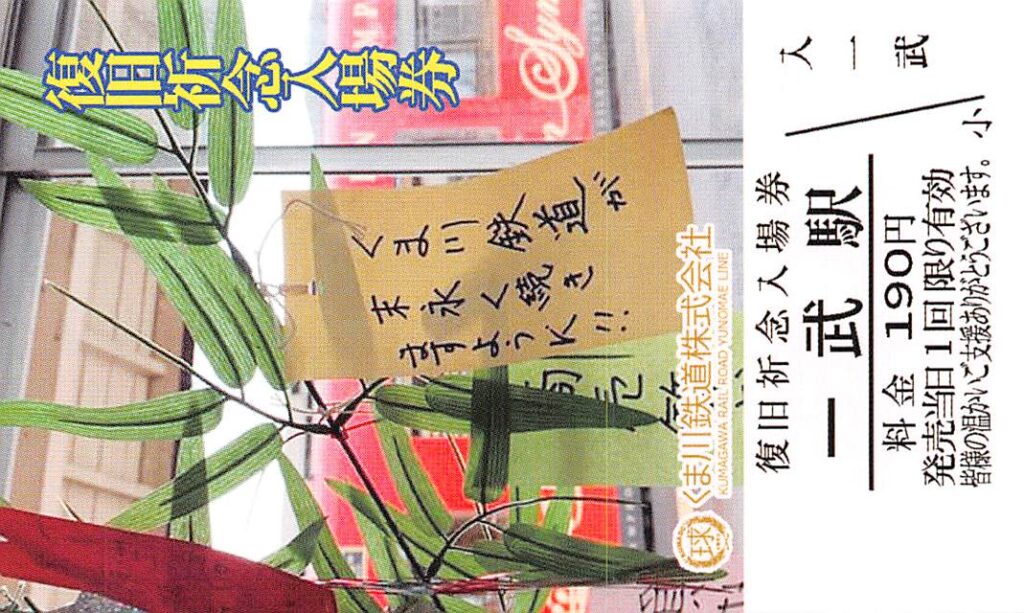 復旧祈念入場券
くま川鉄道が
末永く続き
ますように!!
球
くま川鉄道株式会社
KUMAGAWA RAIL ROAD YUNOMAE LINE
復旧祈念入場券
一武駅
料金 190円
発売当日1回限り有効
皆様の温かいご支援ありがとうございます。
小
入
一
武